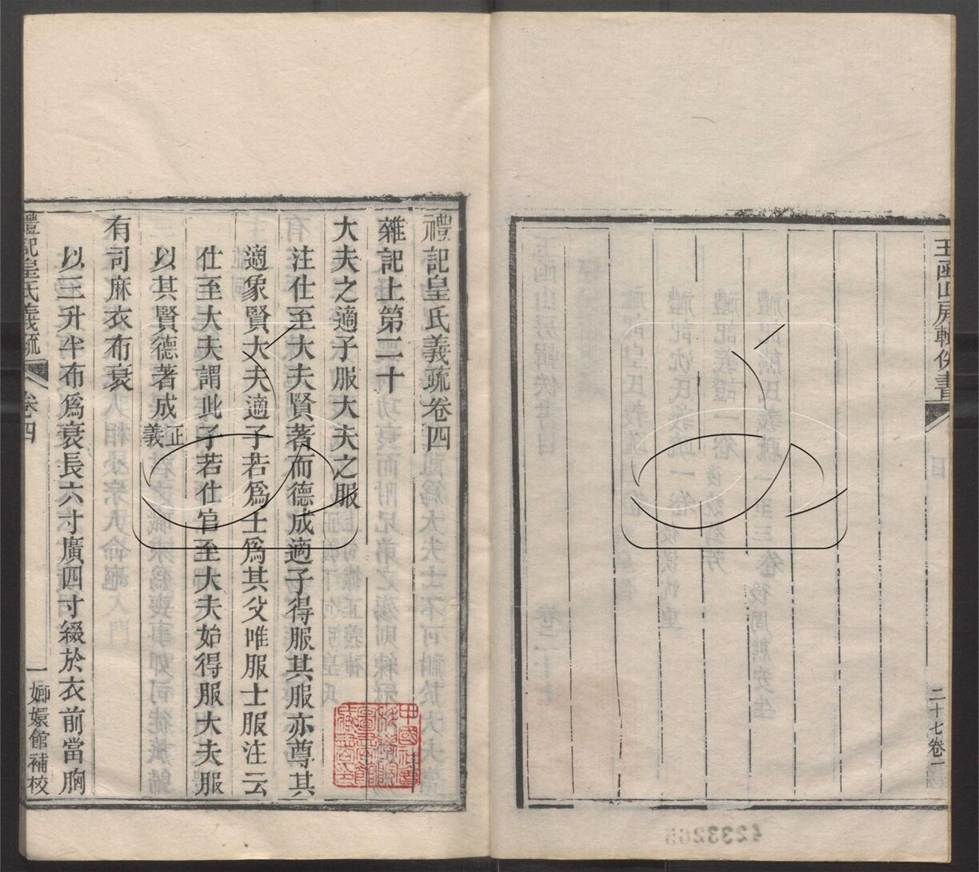 玉函山房輯佚書
目
二十七卷一
禮記皇氏義疏卷四
雜記上第二十
大夫之適子服大夫之服
注仕至大夫賢著而德成適子得服其服亦尊其
適象賢大夫適子若爲士爲其父唯服士服注云
仕至大夫謂此子若仕官至大夫始得服大夫服
以其賢德著成正義
有司麻衣布衰
以三升半布爲衰長六寸廣四寸綴於衣前當胸
禮記皇氏義疏 卷四
一 嫏嬛館補校